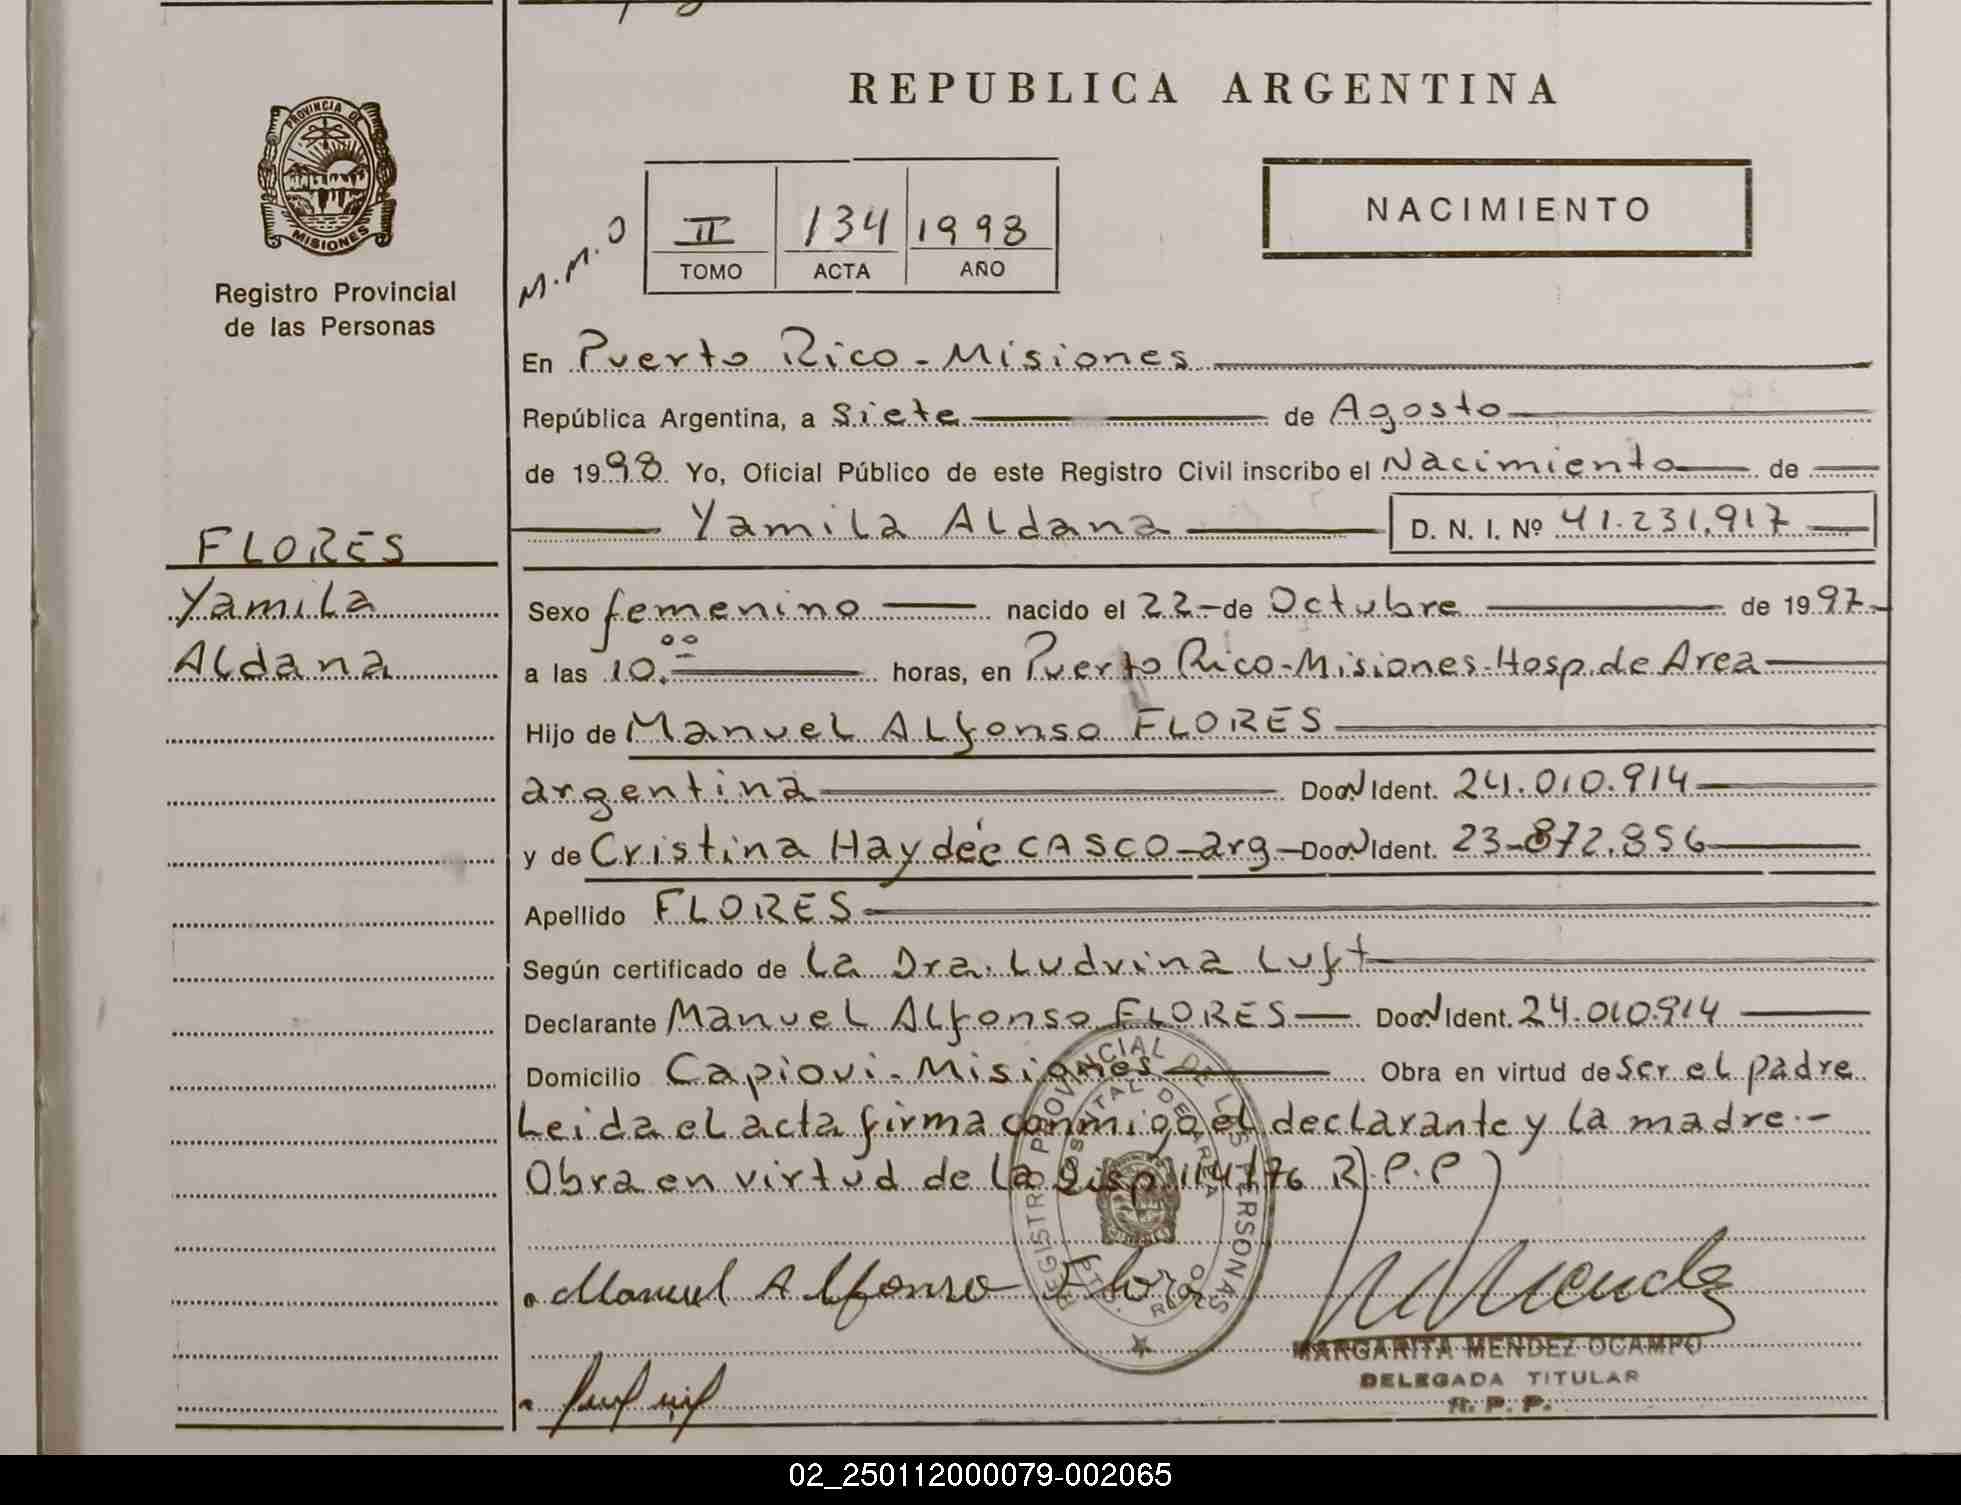 REPUBLICA ARGENTINA
PROVINCIA DE
MISIONES
Registro Provincial
de las Personas
M.M.O
II 134 1998
TOMO ACTA AÑO
NACIMIENTO
En Puerto Rico - Misiones
República Argentina, a Siete de Agosto
de 1998 Yo, Oficial Público de este Registro Civil inscribo el Nacimiento de
Yamila Aldana D. N. I. Nº 41.231.917
FLORES
Yamila
Aldana
Sexo femenino nacido el 22 - de Octubre de 1997 -
a las 10.00 horas, en Puerto Rico - Misiones - Hosp. de Area
Hijo de Manuel Alfonso FLORES
argentina Doc. N Ident. 24.010.914
y de Cristina Haydée CASCO - arg - Doc. N Ident. 23-872.856
Apellido FLORES
Según certificado de La Dra. Ludvina Luft
Declarante Manuel Alfonso FLORES Doc. N Ident. 24.010.914
Domicilio Capiovi - Misiones Obra en virtud de ser el padre
Leida el acta firma conmigo el declarante y la madre.-
Obra en virtud de la Disp 114/76 R.P.P
REGISTRO PROVINCIAL DE LAS PERSONAS
Manuel Alfonso Flores
MARGARITA MENDEZ OCAMPO
DELEGADA TITULAR
R. P. P.
02_250112000079-002065